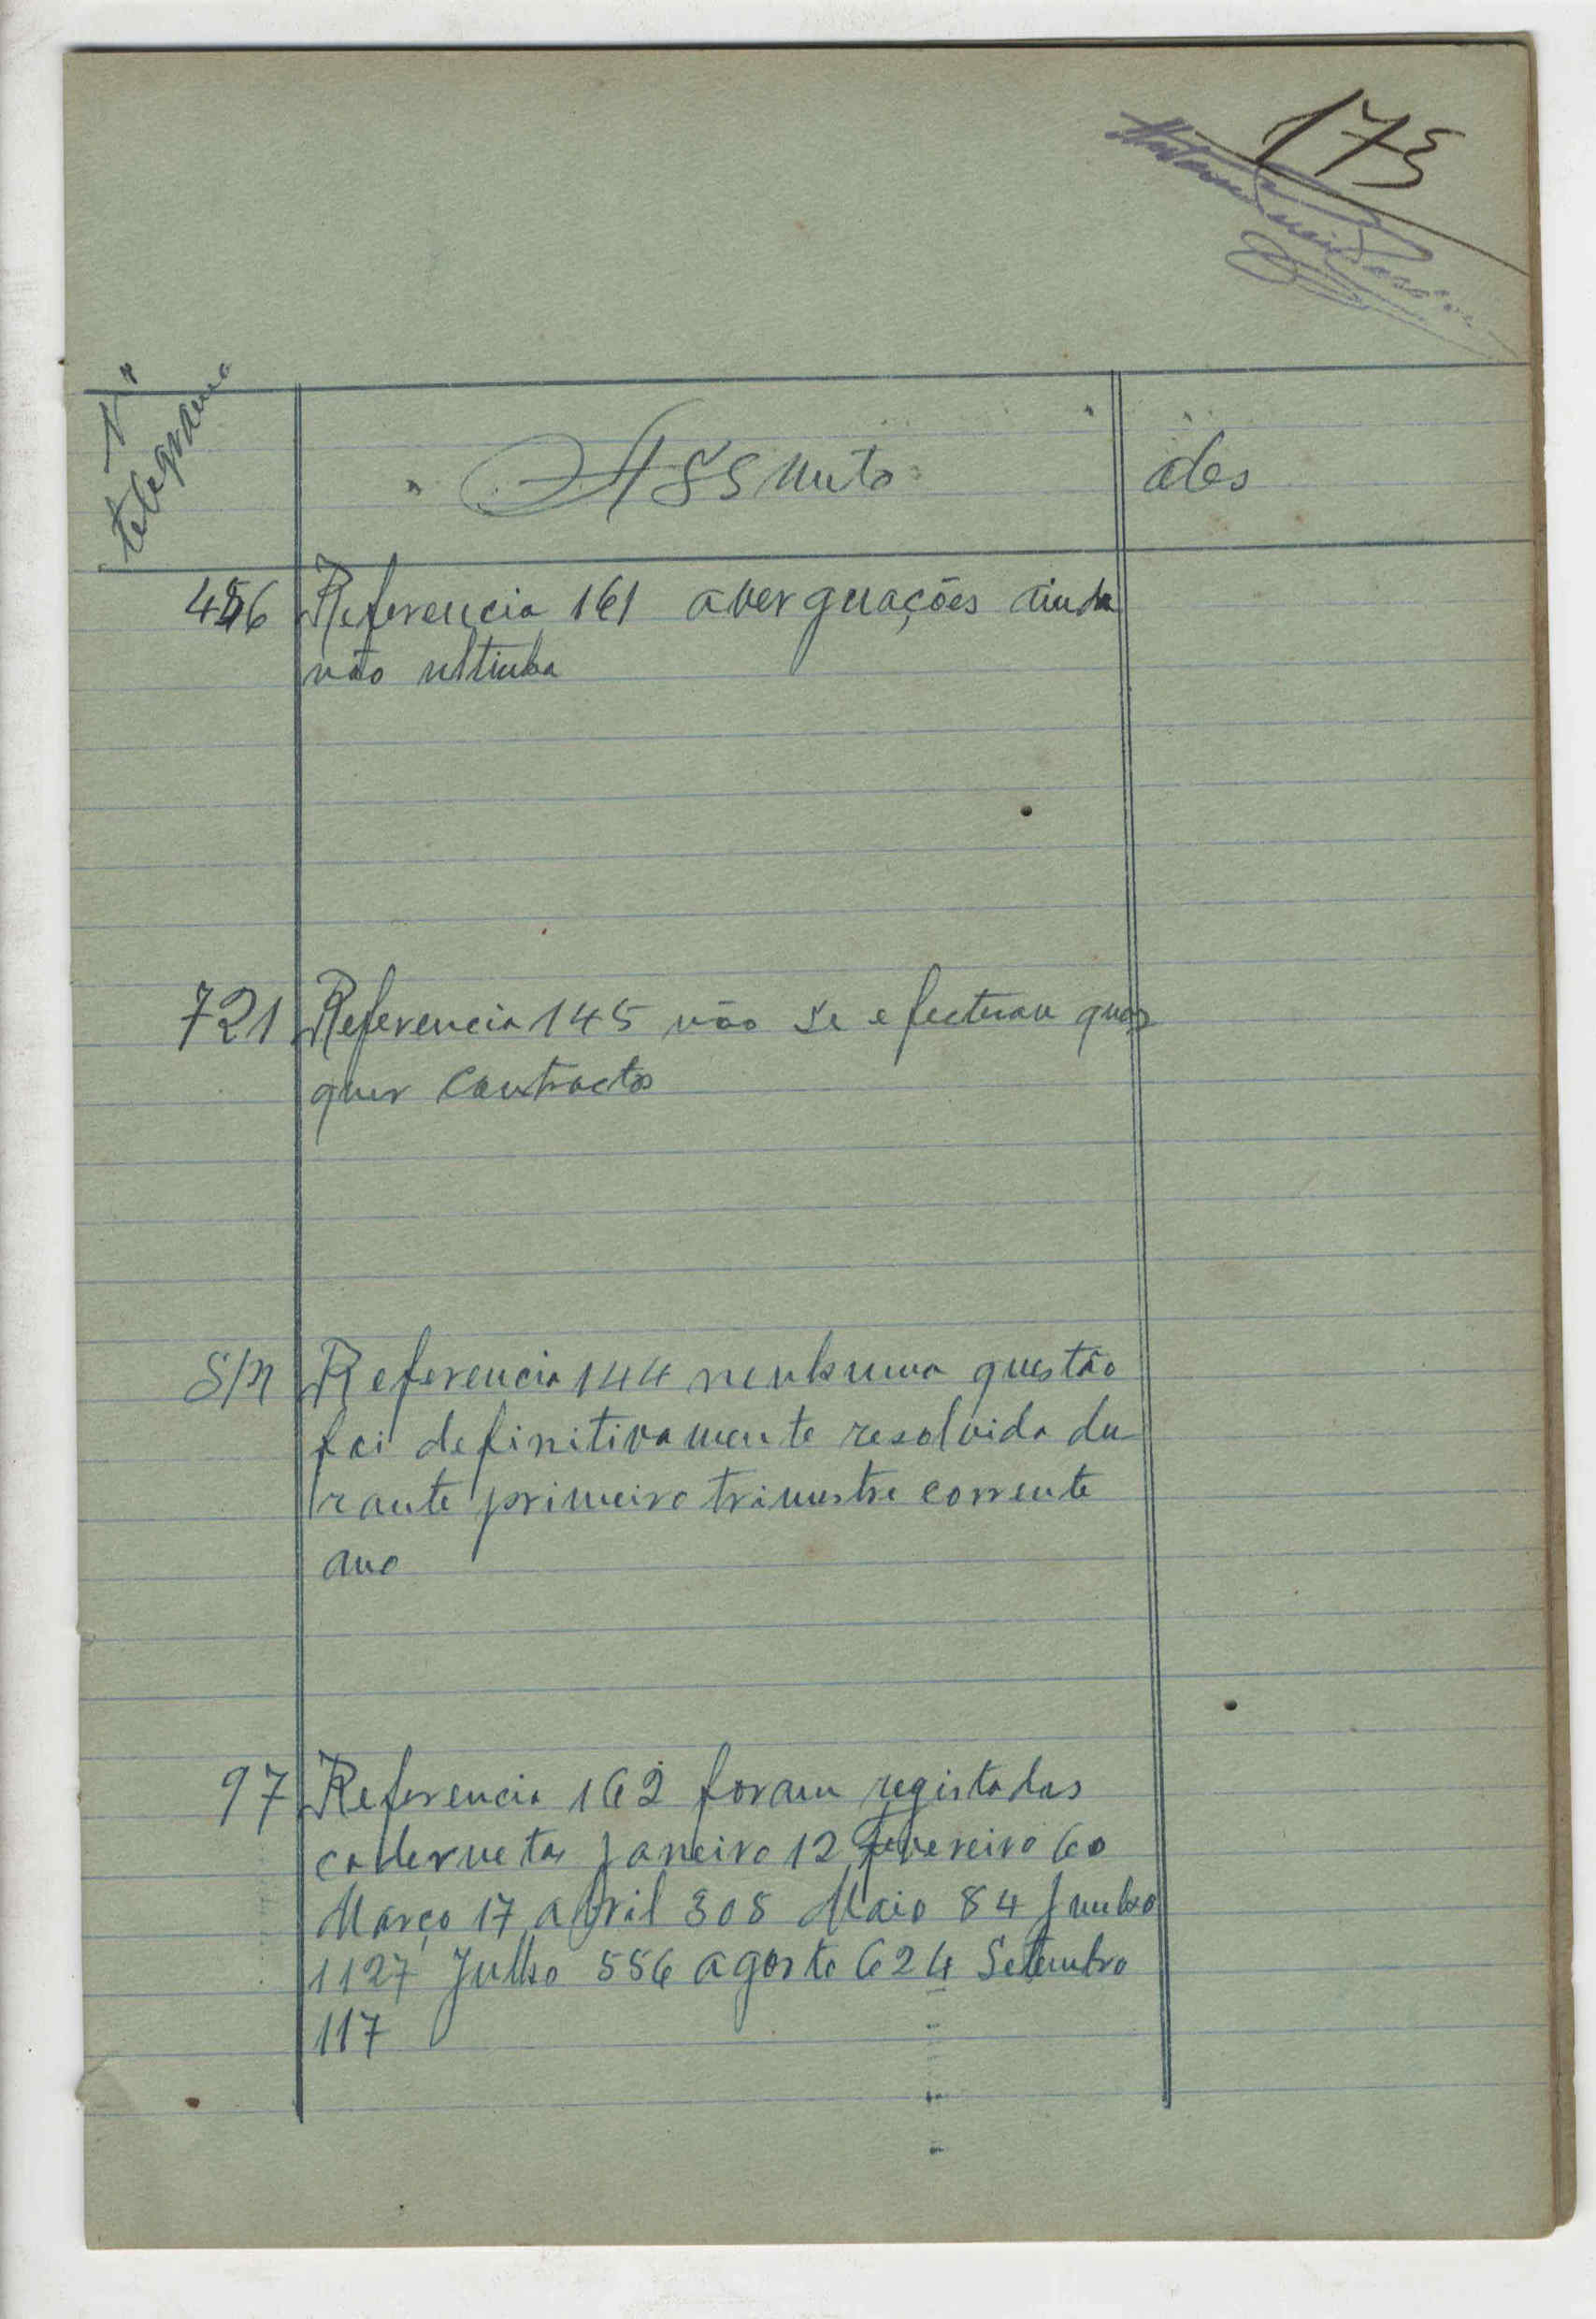 173
Nº
telegrama
Assunto
ões
Referencia 161 averguações ainda
não ultimba
721 Referencia 145 não se efectuou quas
quer contractos
S/N Referencia 144 nenhuma questão
foi definitivamente resolvida du
rante primeiro trimestre corrente
ano
97 Referencia 162 foram registadas
cadernetas Janeiro 12 fevereiro 60
Março 17 abril 308 Maio 84 Junho
1127 Julho 556 agosto 624 Setembro
117